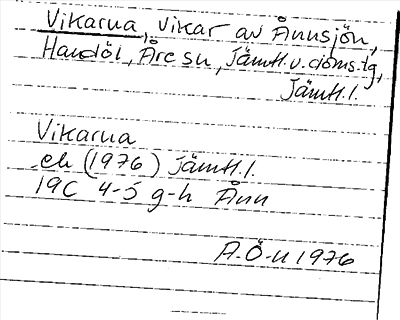 Vikarna, vikar av Ånnsjön,
Handöl, Åre sn, Jämtl. v. doms. tg,
Jämtl. l.
Vikarna
ek (1976) Jämtl. l.
19C 4-5 g-h Ånn
A.Ö-n 1976